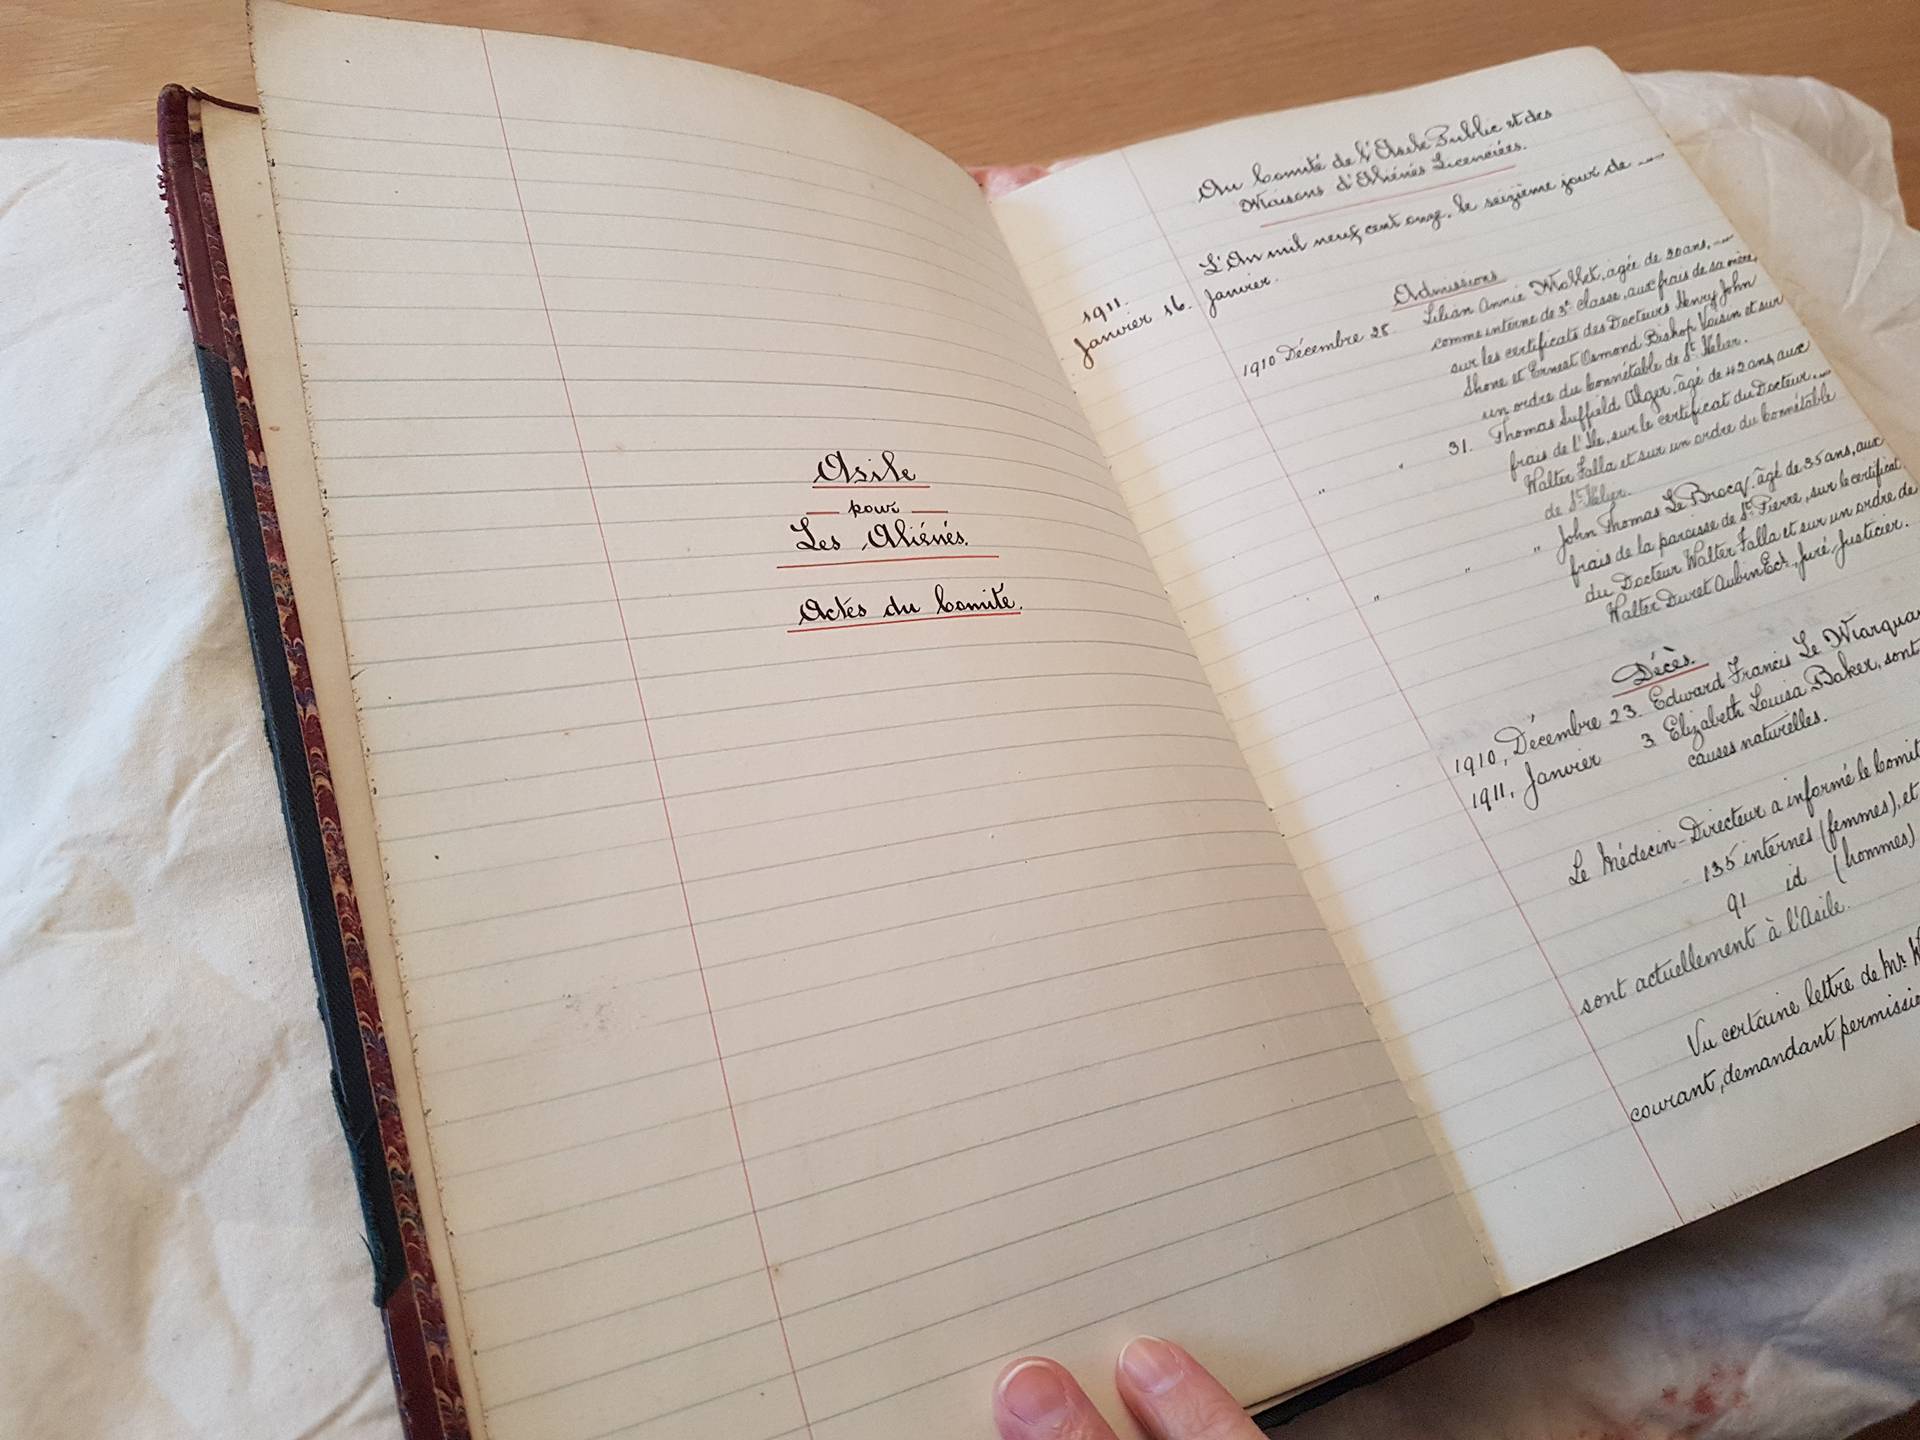 Asile
pour
Les Aliénés.
Actes du Comité.
Au Comité de l'Asile Public et des
Maisons d'Aliénés Licenciées.
1911.
Janvier 16.
L'An mil neuf cent onze, le seizième jour de
Janvier.
Admissions
1910 Décembre 28 Lilian Annie Mallet, agée de 20 ans,
comme interne de 3e classe, aux frais de sa mère,
sur les certificats des Docteurs Henry John
Shone et Ernest Osmond Bishop Voisin et sur
un ordre du Connétable de St. Helier.
" " 31. Thomas Suffield Alger, âgé de 42 ans, aux
frais de l'Ile, sur le certificat du Docteur
Walter Falla et sur un ordre du Connétable
de St. Helier.
" " " John Thomas Le Brocq, âgé de 35 ans, aux
frais de la paroisse de St. Pierre, sur le certificat
du Docteur Walter Falla et sur un ordre de
Walter Duret Aubin Ecr., Juré-Justicier.
Décès.
1910, Décembre 23. Edward Francis Le
1911, Janvier 3. Elizabeth Louisa Baker, sont
causes naturelles.
Le Médecin-Directeur a informé le Comité
135 internes (femmes), et
91 id (hommes)
sont actuellement à l'Asile.
Vu certaine lettre de Mr.
courant, demandant